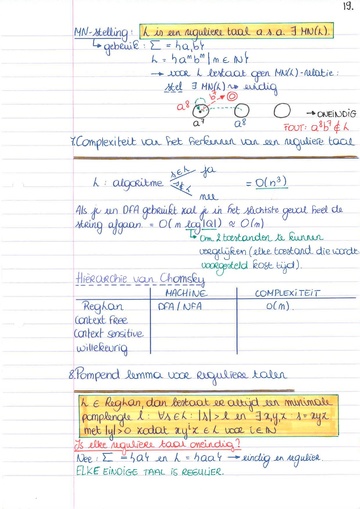 19.
MN-stelling: L is een reguliere taal a.s.a. ∃ MN(L).
↳ gebruik: Σ = {a,b}
L = {aⁿbⁿ | n ∈ ℕ}
→ voor L bestaat geen MN(L)-relatie:
stel ∃ MN(L) → eindig
a⁸ b⁷
a⁷ a⁸ → ONEINDIG
FOUT: a⁸b⁷ ∉ L
7. Complexiteit van het herkennen van een reguliere taal
L: algoritme s∈L ja = O(n³)
s∉L nee
Als je een DFA gebruikt zal je in het slechtste geval heel de
string afgaan = O(n log|Q|) ≈ O(n)
↳ om 2 toestanden te kunnen
vergelijken (elke toestand die wordt
voorgesteld kost tijd).
Hiërarchie van Chomsky
MACHINE COMPLEXITEIT
Reglan DFA / NFA O(n)
Context Free
Context sensitive
Willekeurig
8. Pompend lemma voor reguliere talen
L ∈ Reglan, dan bestaat er altijd een minimale
pomplengte l: ∀s∈L: |s|>l en ∃x,y,z s=xyz
met |y|>0 zodat xyⁱz ∈ L voor i∈ℕ
Is elke reguliere taal oneindig?
Nee: Σ = {a} en L = {aa} → eindig en regulier.
ELKE EINDIGE TAAL IS REGULIER.